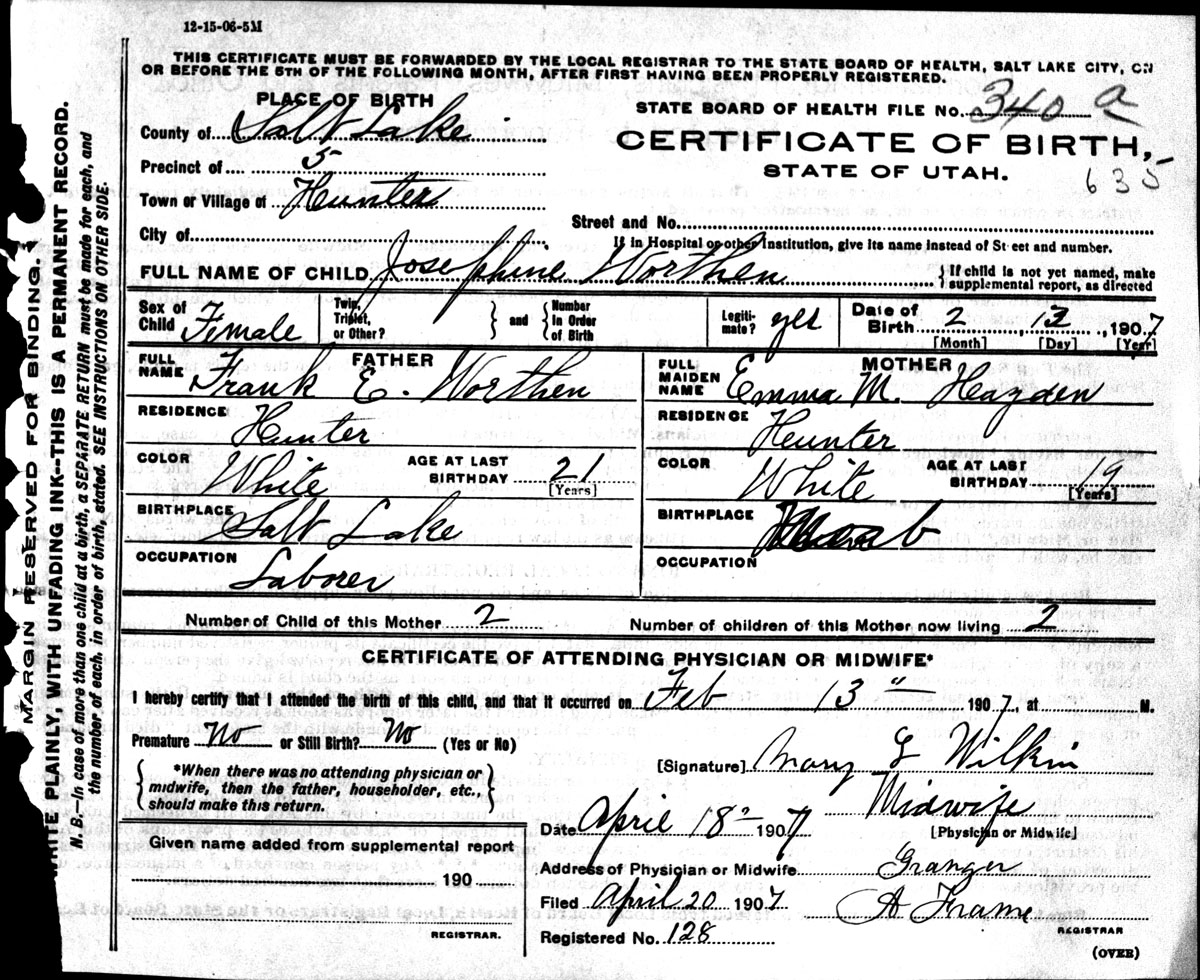 12-15-06-5M
THIS CERTIFICATE MUST BE FORWARDED BY THE LOCAL REGISTRAR TO THE STATE BOARD OF HEALTH, SALT LAKE CITY, ON
OR BEFORE THE 5TH OF THE FOLLOWING MONTH, AFTER FIRST HAVING BEEN PROPERLY REGISTERED.
PLACE OF BIRTH
County of Salt Lake
Precinct of 5
Town or Village of Hunter
City of
STATE BOARD OF HEALTH FILE No. 340 a
CERTIFICATE OF BIRTH,
STATE OF UTAH.
635
Street and No.
If in Hospital or other Institution, give its name instead of Street and number.
FULL NAME OF CHILD Josephine Worthen
{ If child is not yet named, make
supplemental report, as directed
Sex of Child Female
Twin, Triplet, or Other? } and { Number in Order of Birth
Legitimate? yes
Date of Birth 2 , 13 , 1907
[Month] [Day] [Year]
FATHER
FULL NAME Frank E. Worthen
RESIDENCE Hunter
COLOR White AGE AT LAST BIRTHDAY 21
[Years]
BIRTHPLACE Salt Lake
OCCUPATION Laborer
MOTHER
FULL MAIDEN NAME Emma M. Hayden
RESIDENCE Hunter
COLOR White AGE AT LAST BIRTHDAY 19
[Years]
BIRTHPLACE
OCCUPATION
Number of Child of this Mother 2 Number of children of this Mother now living 2
CERTIFICATE OF ATTENDING PHYSICIAN OR MIDWIFE*
I hereby certify that I attended the birth of this child, and that it occurred on Feb 13" 1907, at M.
Premature No or Still Birth? No (Yes or No)
{ *When there was no attending physician or
midwife, then the father, householder, etc.,
should make this return. }
[Signature] Mary L Wilkin
Midwife
[Physician or Midwife]
Date April 18 1907
Given name added from supplemental report
190
REGISTRAR.
Address of Physician or Midwife Granger
Filed April 20 1907 A Frame
REGISTRAR
Registered No. 128
(OVER)
MARGIN RESERVED FOR BINDING.
WRITE PLAINLY, WITH UNFADING INK--THIS IS A PERMANENT RECORD.
N. B.—In case of more than one child at a birth, a SEPARATE RETURN must be made for each, and
the number of each, in order of birth, stated. SEE INSTRUCTIONS ON OTHER SIDE.